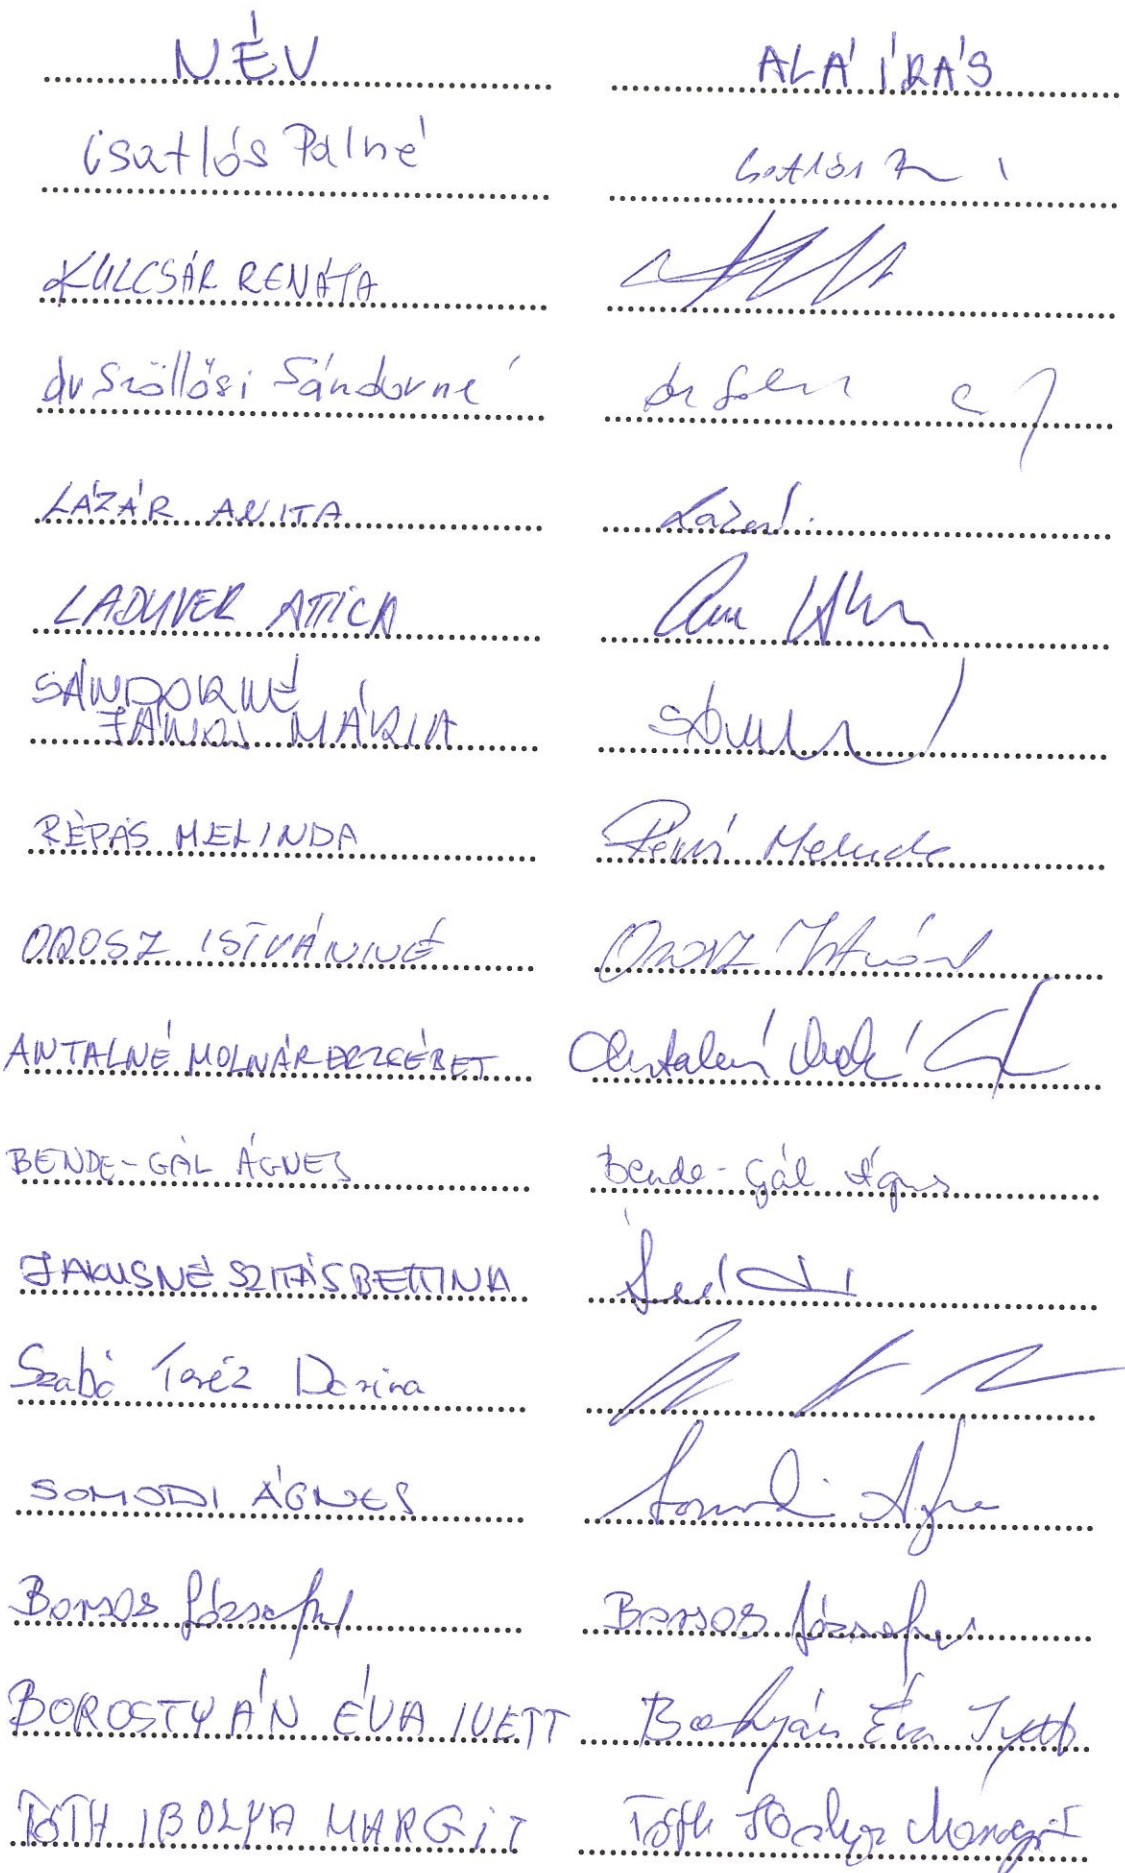 NÉV ALÁÍRÁS
Csatlós Pálné Csatlós
KULCSÁR RENÁTA
dr Szöllősi Sándorné dr
LÁZÁR ANITA Lázár
LADUVER ATTILA
SÁNDORNÉ
JÁNOSI MÁRIA
RÉPÁS MELINDA Répás Melinda
OROSZ ISTVÁNNÉ Orosz Istvánné
ANTALNÉ MOLNÁR ERZSÉBET Antalné
BENDE-GÁL ÁGNES Bende-Gál Ágnes
JAKUSNÉ SZITÁS BETTINA
Szabó Teréz Dorina
SOMODI ÁGNES Somodi Ágnes
Borsos Józsefné Borsos Józsefné
BOROSTYÁN ÉVA IVETT Borostyán Éva Ivett
TÓTH IBOLYA MARGIT Tóth Ibolya Margit